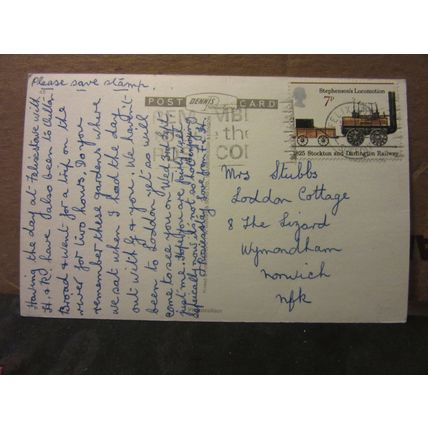 Please save stamp.
Having the day at Felixstowe with
H. & R. have also been to Oulton
Broad & went for a trip on the
river for two hours. Do you
remember these gardens where
we sat when I had the day
out with G & you. We haven't
been to Loddon yet as will
come to see you on Wed
just me. Hope you are
especially now its not so hot
love from
POST CARD
DENNIS
the
CO
Stephenson's Locomotion
7P
1825 Stockton and Darlington Railway
Mrs Stubbs
Loddon Cottage
8 The Lizard
Wymondham
Norwich
Nfk